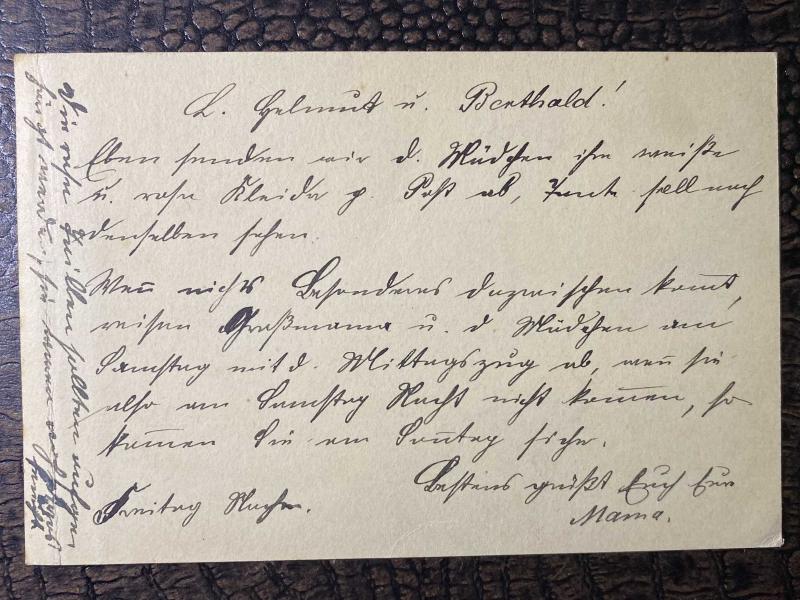 L. Helmut u. Berthold!
Eben senden wir d. Mädchen ihre weiße
u. rosa Kleider p. Post ab, Tante soll nach
denselben sehen.
Wen̄ nichts Besonderes dazwischen kom̄t,
reisen Großmama u. d. Mädchen am
Samstag mit d. Mittagszug ab, wen̄ sie
also am Samstag Nacht nicht kom̄en, so
kom̄en Sie am Son̄tag sicher.
Bestens grüßt Euch Eure
Mama.
Freitag Nachm.
Die rosa sollten aufge-
werden, sie